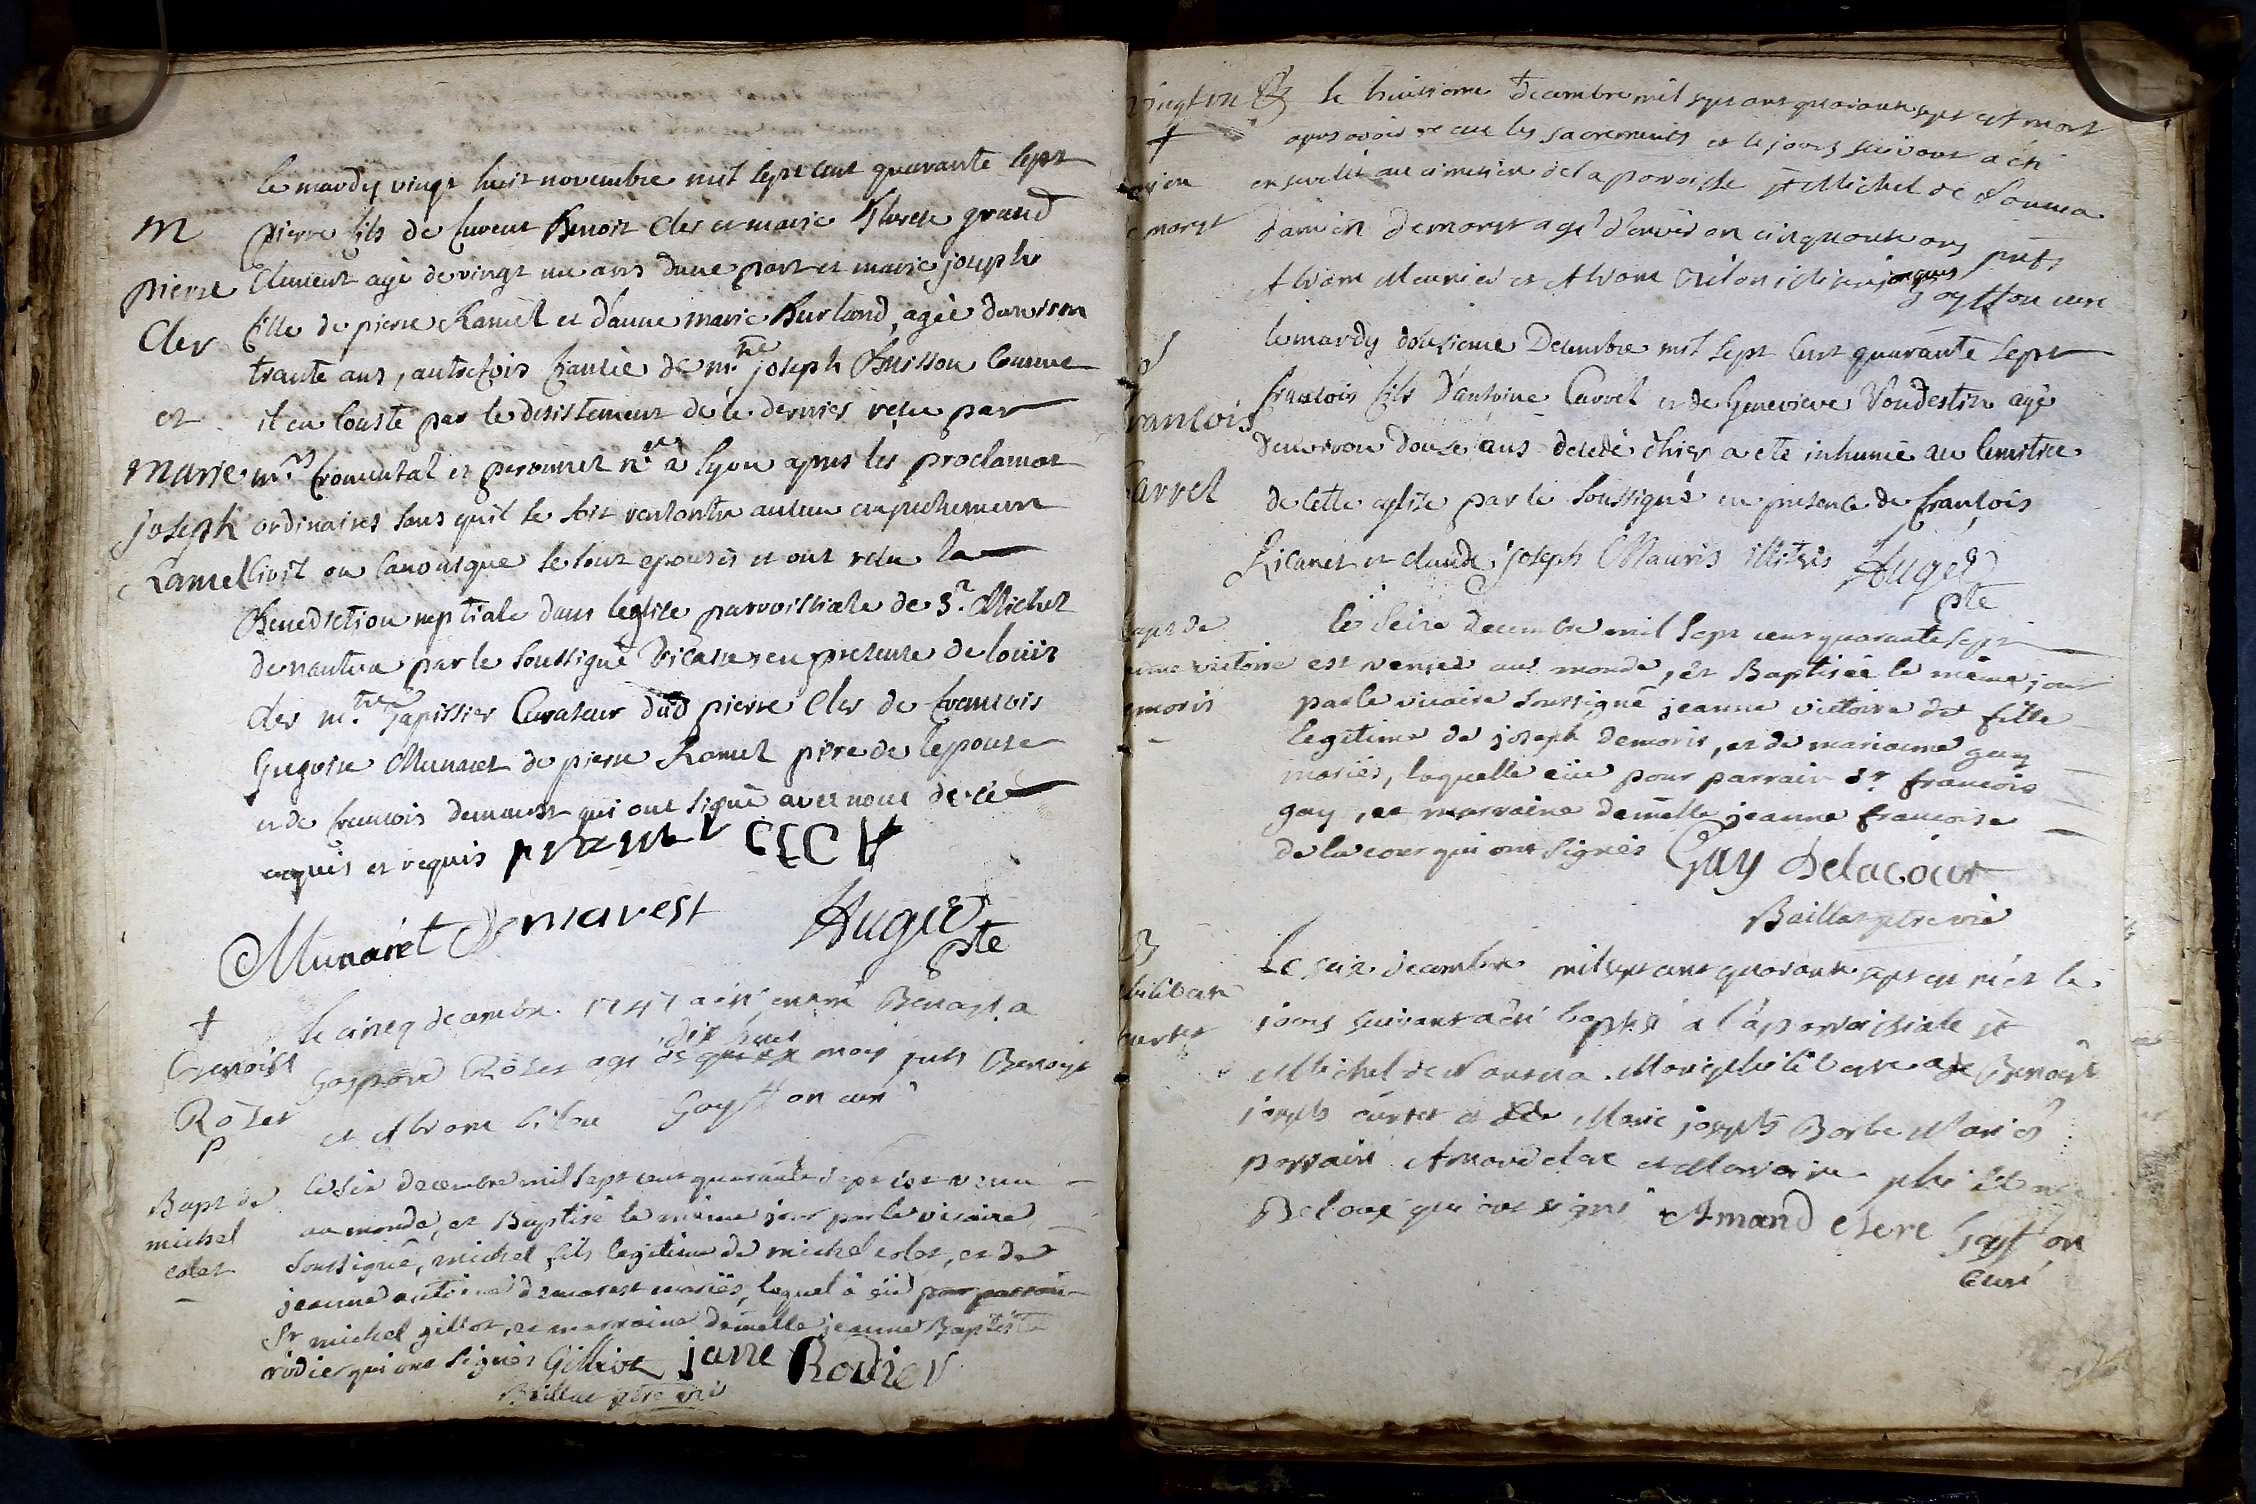 le mardy vingt huit novembre mil sept cent quarante sept
M
pierre fils de Benoit Cler et marie grand
pierre
Clement agé de vingt un ans dune part et marie joseph
fille de pierre Ramel et d'anne marie Burland, agée
Cler
trante ans, autrefois fiancée de m.tre joseph Buisson Comme
et
il en Conste par le desistement de ce dernier recu par
Marie
m.rs fromental et peronnet n.res a lyon apres les proclamat
joseph
ordinaires sans quil se soit rencontré aucun empechement
Ramel
Civil ou Canonique se sont epousés et ont recu la
Benediction nuptiale dans leglise parroissiale de St Michel
de nantua par le soussigné Vicaire en presence de loüis
cler m.tre Tapissier Curateur dud pierre Cler de francois
Gregoire Munaret de pierre Ramel pere de lepouse
et de francois demarest qui ont signé avec nous de ce
enquis et requis
Munaret Demarest Augié
pte
+
le cineq decembre 1747 a été enterré Benoist a
Benoist
dix huit
Gaspard Rözet agé de mois pnts Benoist
Rözet
et Gaystton curé
p
Bapt de
le six decembre mil sept cent quarante sept est venu
michel
au monde, et Baptisé le même jour par le vicaire
colet
soussigné, michel fils legitime de michel colet, et de
jeanne antoine demarest mariés, lequel à eü pour parrain
Sr michel gillot, et marraine demelle jeanne Baptiste
rodier qui ont signés Gilliot jane Rodier
Baillat ptre vic

le huitieme decembre mil sept cent quarante sept est mort
+
apres avoir recue les sacrements et le jours suivant a été
enseveli au cimetiere de la paroisse st Michel de Nantua
damien Demorest agé d'environ cinquante ans pnts
Meunier et
Gaystton cure
le mardy dousieme Decembre mil sept cent quarante sept
françois fils d'antoine Carrel et de Genevieve Vondestin agé
rancois
denviron douse ans decedé hier a eté inhumé au Cemitiere
arrel
de cette eglise par le soussigné en presence de françois
Ricanet et claude joseph Mauris illiterés Augié
pte
bapt de
le seize decembre mil sept cent quarante sept
anne victoire
est venüe au monde, et Baptisée le même jour
emoris
par le vicaire soussigné jeanne victoire de fille
legitime de joseph demoris, et de marianne guy
mariés, laquelle eüe pour parrain sr francois
guy, et marraine demelle jeanne francoise
de la cour qui ont signés Guy Delacour
Baillat ptre vic
B
Le seize decembre mil sept cent quarante sept est née et le
philiberte
jours suivant a été baptisé a l'é parroissiale st
curtet
Michel de Nantua Marie philiberte de Benoist
joseph curtet et de Marie joseph Barbe Mariés
parrain Amand clerc et Marraine
Belouze qui ont signé Amand clerc Gaystton
curé